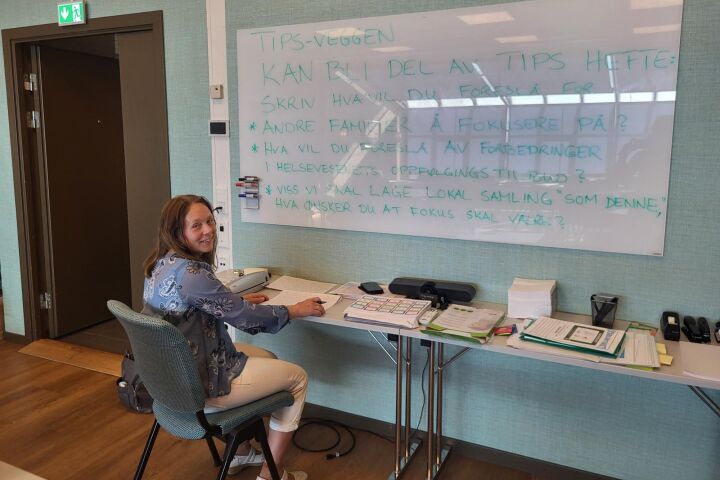 TIPS-VEGGEN
KAN BLI DEL AV TIPS HEFTE:
SKRIV HVA VIL DU FORESLÅ FOR
* ANDRE FAMILIER Å FOKUSERE PÅ?
* HVA VIL DU FORESLÅ AV FORBEDRINGER
I HELSEVESENETS OPPFØLGINGSTILBUD?
* VISS VI SKAL LAGE LOKAL SAMLING "SOM DENNE,"
HVA ØNSKER DU AT FOKUS SKAL VÆRE?